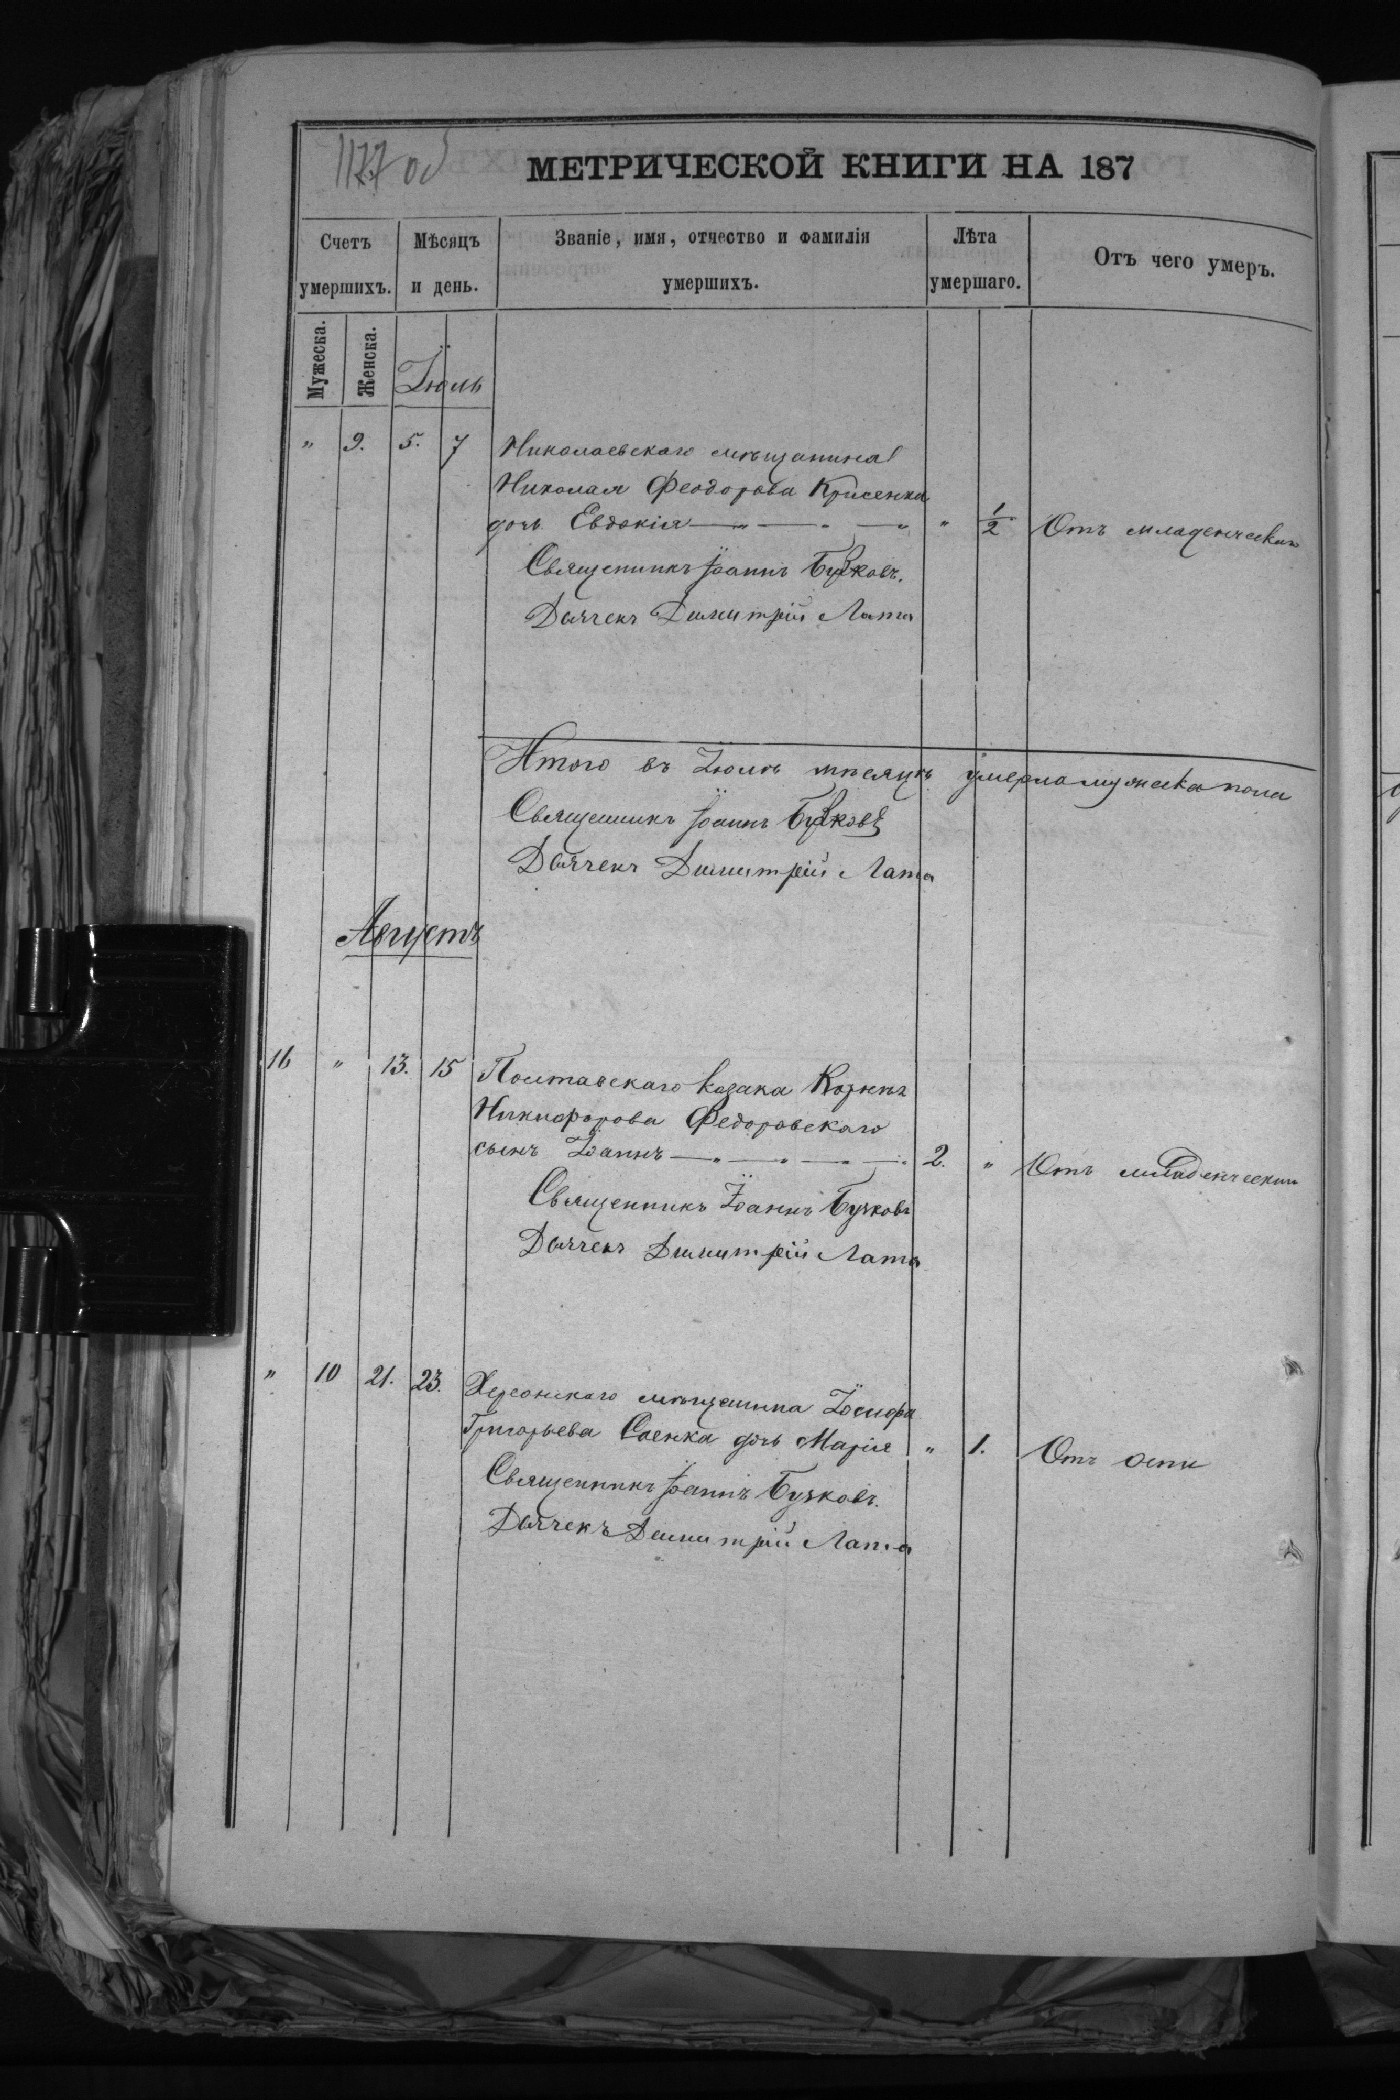 1177 об
МЕТРИЧЕСКОЙ КНИГИ НА 187
Счетъ умершихъ.
Мѣсяцъ и день.
Званіе, имя, отчество и фамилія умершихъ.
Лѣта умершаго.
Отъ чего умеръ.
Мужеска.
Женска.
Іюль
" 9. 5. 7 Николаевскаго мѣщанина
Николая Феодорова Крисенка
дочь Евдокія " 1/2 Отъ младенческаго
Священникъ Іоаннъ Бучковъ.
Дьячекъ Димитрій Лата
Итого въ Іюлѣ мѣсяцѣ умерло мужеска пола
Священникъ Іоаннъ Бучковъ
Дьячекъ Димитрій Лата
Августъ
16 " 13. 15 Полтавскаго козака
Никифорова Федоровскаго
сынъ Іоаннъ 2. " Отъ младенческой
Священникъ Іоаннъ Бучковъ
Дьячекъ Димитрій Лата
" 10 21. 23. Херсонскаго мѣщанина Іосифа
Григорьева Саенка дочь Марія " 1. Отъ оспи
Священникъ Іоаннъ Бучковъ.
Дьячекъ Димитрій Лата